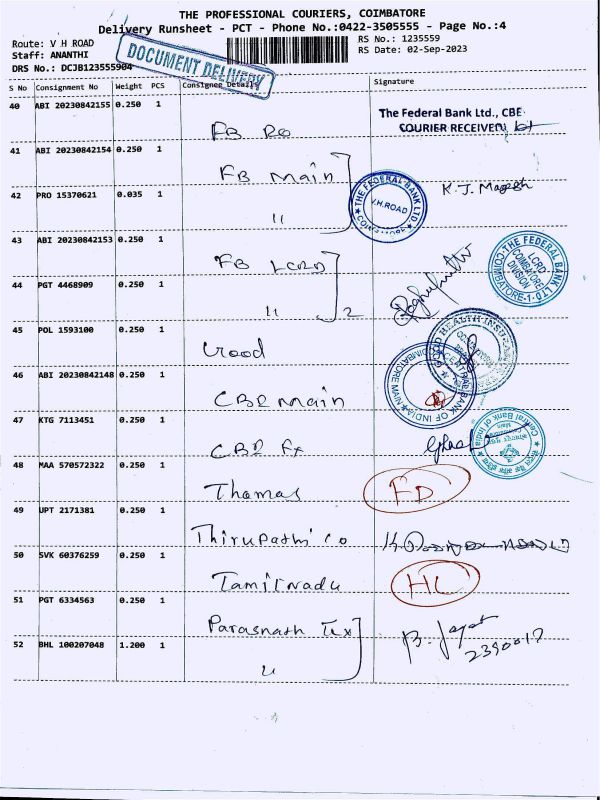 THE PROFESSIONAL COURIERS, COIMBATORE
Delivery Runsheet - PCT - Phone No.:0422-3505555 - Page No.:4
Route: V H ROAD
RS No.: 1235559
Staff: ANANTHI
RS Date: 02-Sep-2023
DRS No.: DCJB123555904
DOCUMENT DELIVERY
S No Consignment No Weight PCS Consignee Details Signature
40 ABI 20230842155 0.250 1
FB RO
The Federal Bank Ltd., CBE
COURIER RECEIVED
41 ABI 20230842154 0.250 1
FB Main
K. J. Magesh
THE FEDERAL BANK LTD
V.H.ROAD
42 PRO 15370621 0.035 1
"
43 ABI 20230842153 0.250 1
FB LCRD
THE FEDERAL BANK LTD
LCRD
COIMBATORE
DIVISION
COIMBATORE-1
44 PGT 4468909 0.250 1
" 2
45 POL 1593100 0.250 1
HEALTH INSU
46 ABI 20230842148 0.250 1
CBI Main
CENTRAL BANK OF INDIA
COIMBATORE MAIN
47 KTG 7113451 0.250 1
CBI Fx
Central Bank of India
48 MAA 570572322 0.250 1
Thomas
FD
49 UPT 2171381 0.250 1
Thirupathi Co
50 SVK 60376259 0.250 1
Tamilnadu
HL
51 PGT 6334563 0.250 1
Parasnath Tex
52 BHL 100207048 1.200 1
"